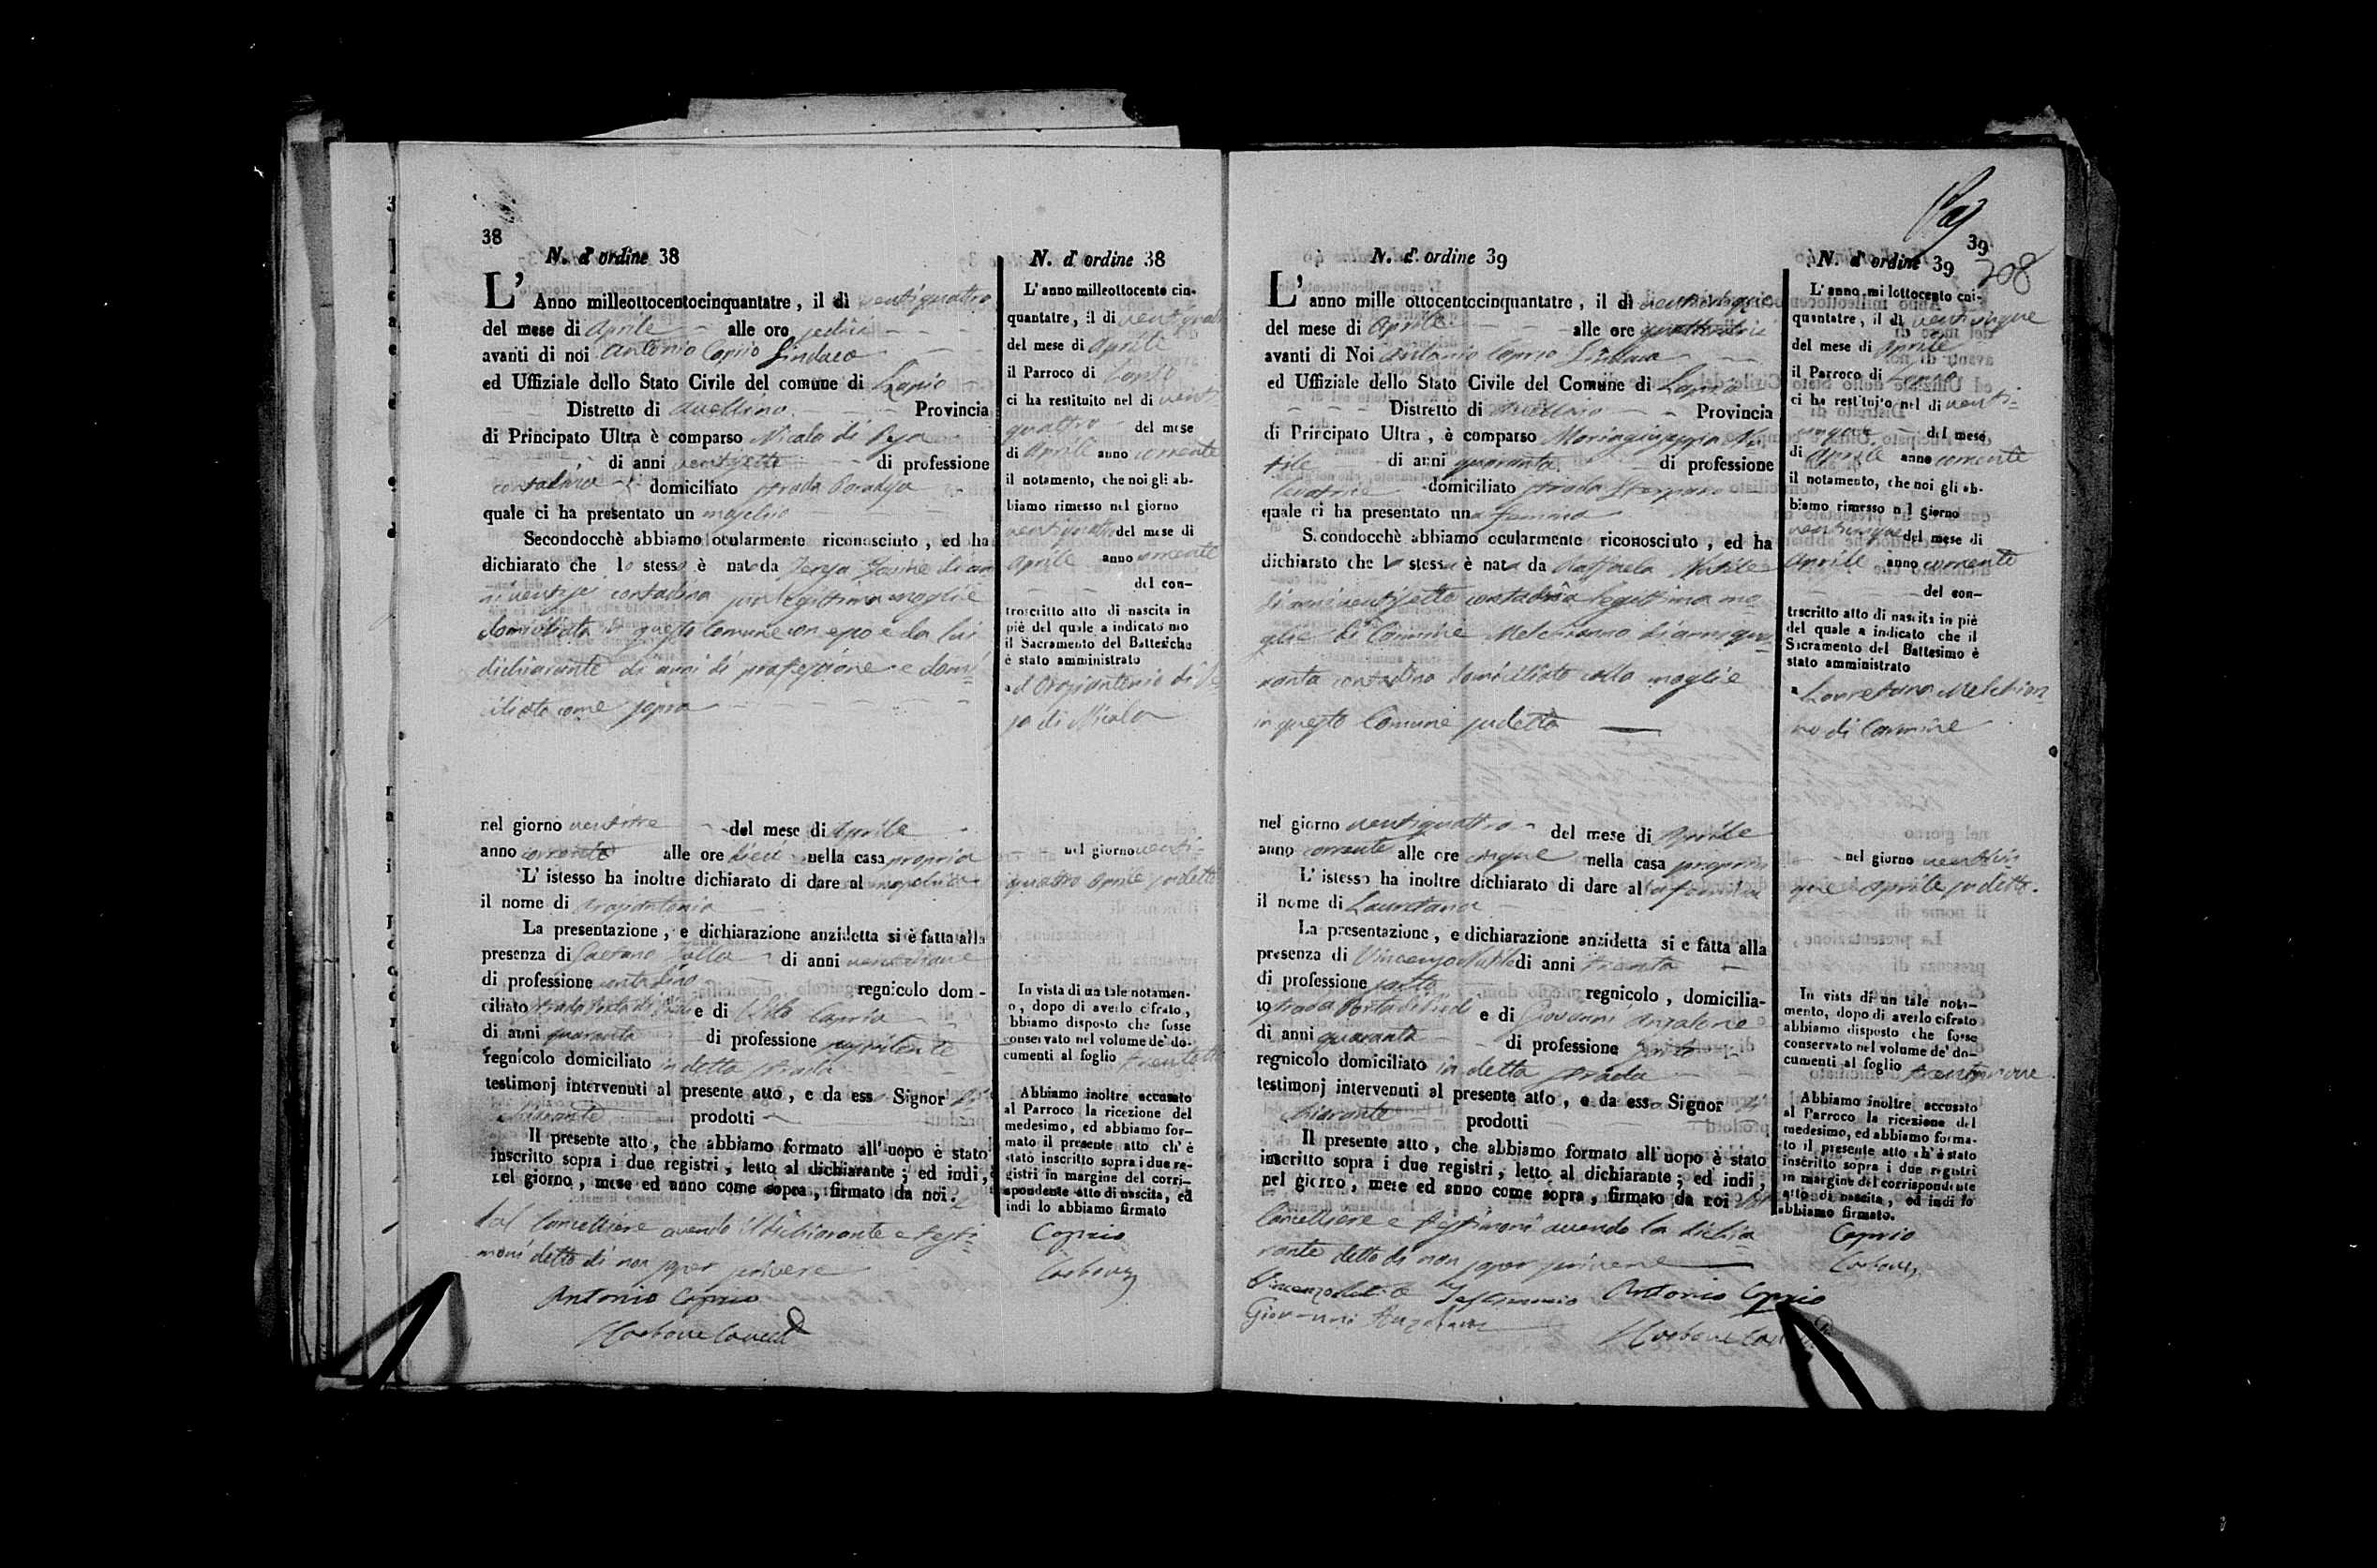 38
N. d'ordine 38
L' Anno milleottocentocinquantatre, il dì ventiquattro
del mese di Aprile alle ore sedici
avanti di noi Antonio Caprio Sindaco
ed Uffiziale dello Stato Civile del comune di Lapio
Distretto di Avellino Provincia
di Principato Ultra è comparso Nicola di
di anni ventisette di professione
contadino domiciliato strada
quale ci ha presentato un maschio
Secondocchè abbiamo ocularmente riconosciuto, ed ha
dichiarato che lo stesso è nato da
contadina sua legittima moglie
domiciliata in questo Comune con esso e da lui
dichiarante di anni di professione e domi
ciliato come sopra
nel giorno ventitre del mese di Aprile
anno corrente alle ore dieci nella casa propria
L' istesso ha inoltre dichiarato di dare al maschio
il nome di Oraziantonio
La presentazione, e dichiarazione anzidetta si è fatta alla
presenza di Gaetano di anni
di professione contadino regnicolo dom-
ciliato strada e di Caprio
di anni quaranta di professione
regnicolo domiciliato in detta strada
testimonj intervenuti al presente atto, e da esso Signor Di
chiarante prodotti
Il presente atto, che abbiamo formato all'uopo è stato
inscritto sopra i due registri, letto al dichiarante; ed indi,
nel giorno, mese ed anno come sopra, firmato da noi,
dal Cancelliere avendo il dichiarante e testi
moni detto di non saper scrivere
Antonio Caprio
N. d'ordine 38
L' anno milleottocento cin-
quantatre, il di
del mese di Aprile
il Parroco di Lapio
ci ha restituito nel di venti
quattro del mese
di Aprile anno corrente
il notamento, che noi gli ab-
biamo rimesso nel giorno
ventiquattro del mese di
Aprile anno corrente
del con-
troscritto atto di nascita in
piè del quale a indicato
il Sacramento del
è stato amministrato
ad Oraziantonio di
di Nicola
nel giorno venti-
quattro Aprile sudetto
In vista di un tale notamen-
o, dopo di averlo cifrato,
bbiamo disposto che fosse
conservato nel volume de' do-
cumenti al foglio
Abbiamo inoltre accusato
al Parroco la ricezione del
medesimo, ed abbiamo for-
mato il presente atto ch' è
stato inscritto sopra i due re-
gistri in margine del corri-
spondente atto di nascita, ed
indi lo abbiamo firmato
Caprio
39
208
N. d'ordine 39
L' anno mille ottocentocinquantatre, il dì venticinque
del mese di Aprile alle ore quattordici
avanti di Noi Antonio Caprio Sindaco
ed Uffiziale dello Stato Civile del Comune di Lapio
Distretto di Avellino Provincia
di Principato Ultra, è comparso Mariagiuseppa Na
tile di anni quaranta di professione
levatrice domiciliato strada
quale ci ha presentato una femina
Secondocchè abbiamo ocularmente riconosciuto, ed ha
dichiarato che la stessa è nata da Raffaela Natile
di anni ventisette contadina legittima mo
glie di Carmine Melchionno di anni qua
ranta contadino domiciliato colla moglie
in questo Comune sudetto
nel giorno ventiquattro del mese di Aprile
anno corrente alle ore cinque nella casa propria
L' istesso ha inoltre dichiarato di dare al la femina
il nome di Lauretana
La presentazione, e dichiarazione anzidetta si e fatta alla
presenza di Vincenzo Natile di anni trenta
di professione sarto regnicolo, domicilia-
to strada e di Giovanni Anzalone
di anni quaranta di professione
regnicolo domiciliato in detta strada
testimonj intervenuti al presente atto, e da essa Signor di
chiarante prodotti
Il presente atto, che abbiamo formato all'uopo è stato
inscritto sopra i due registri, letto al dichiarante; ed indi,
nel giorno, mese ed anno come sopra, firmato da noi
Cancelliere e testimoni avendo la dichia
rante detto di non saper scrivere
Vincenzo Natile Testimonio Antonio Caprio
Giovanni Anzalone
N. d'ordine 39
L' anno millottocento cin-
quantatre, il di venticinque
del mese di Aprile
il Parroco di Lapio
ci ha restituito nel di venti-
cinque del mese
di Aprile anno corrente
il notamento, che noi gli ab-
biamo rimesso nel giorno
venticinque del mese di
Aprile anno corrente
del con-
trscritto atto di nascita in piè
del quale a indicato che il
Sacramento del Battesimo è
stato amministrato
a Lauretana Melchion
no di Carmine
nel giorno venticin
que Aprile sudetto.
In vista di un tale nota-
mento, dopo di averlo cifrato
abbiamo disposto che fosse
conservato nel volume de' do-
cumenti al foglio trentanove
Abbiamo inoltre accusato
al Parroco la ricezione del
medesimo, ed abbiamo forma-
to il presente atto ch' è stato
inscritto sopra i due registri
in margine del corrispondente
atto di nascita, ed indi lo
abbiamo firmato.
Caprio